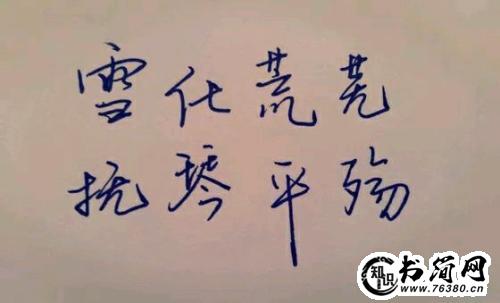 雪化荒芜
抚琴平殇
知识 书简网
www.76380.cn